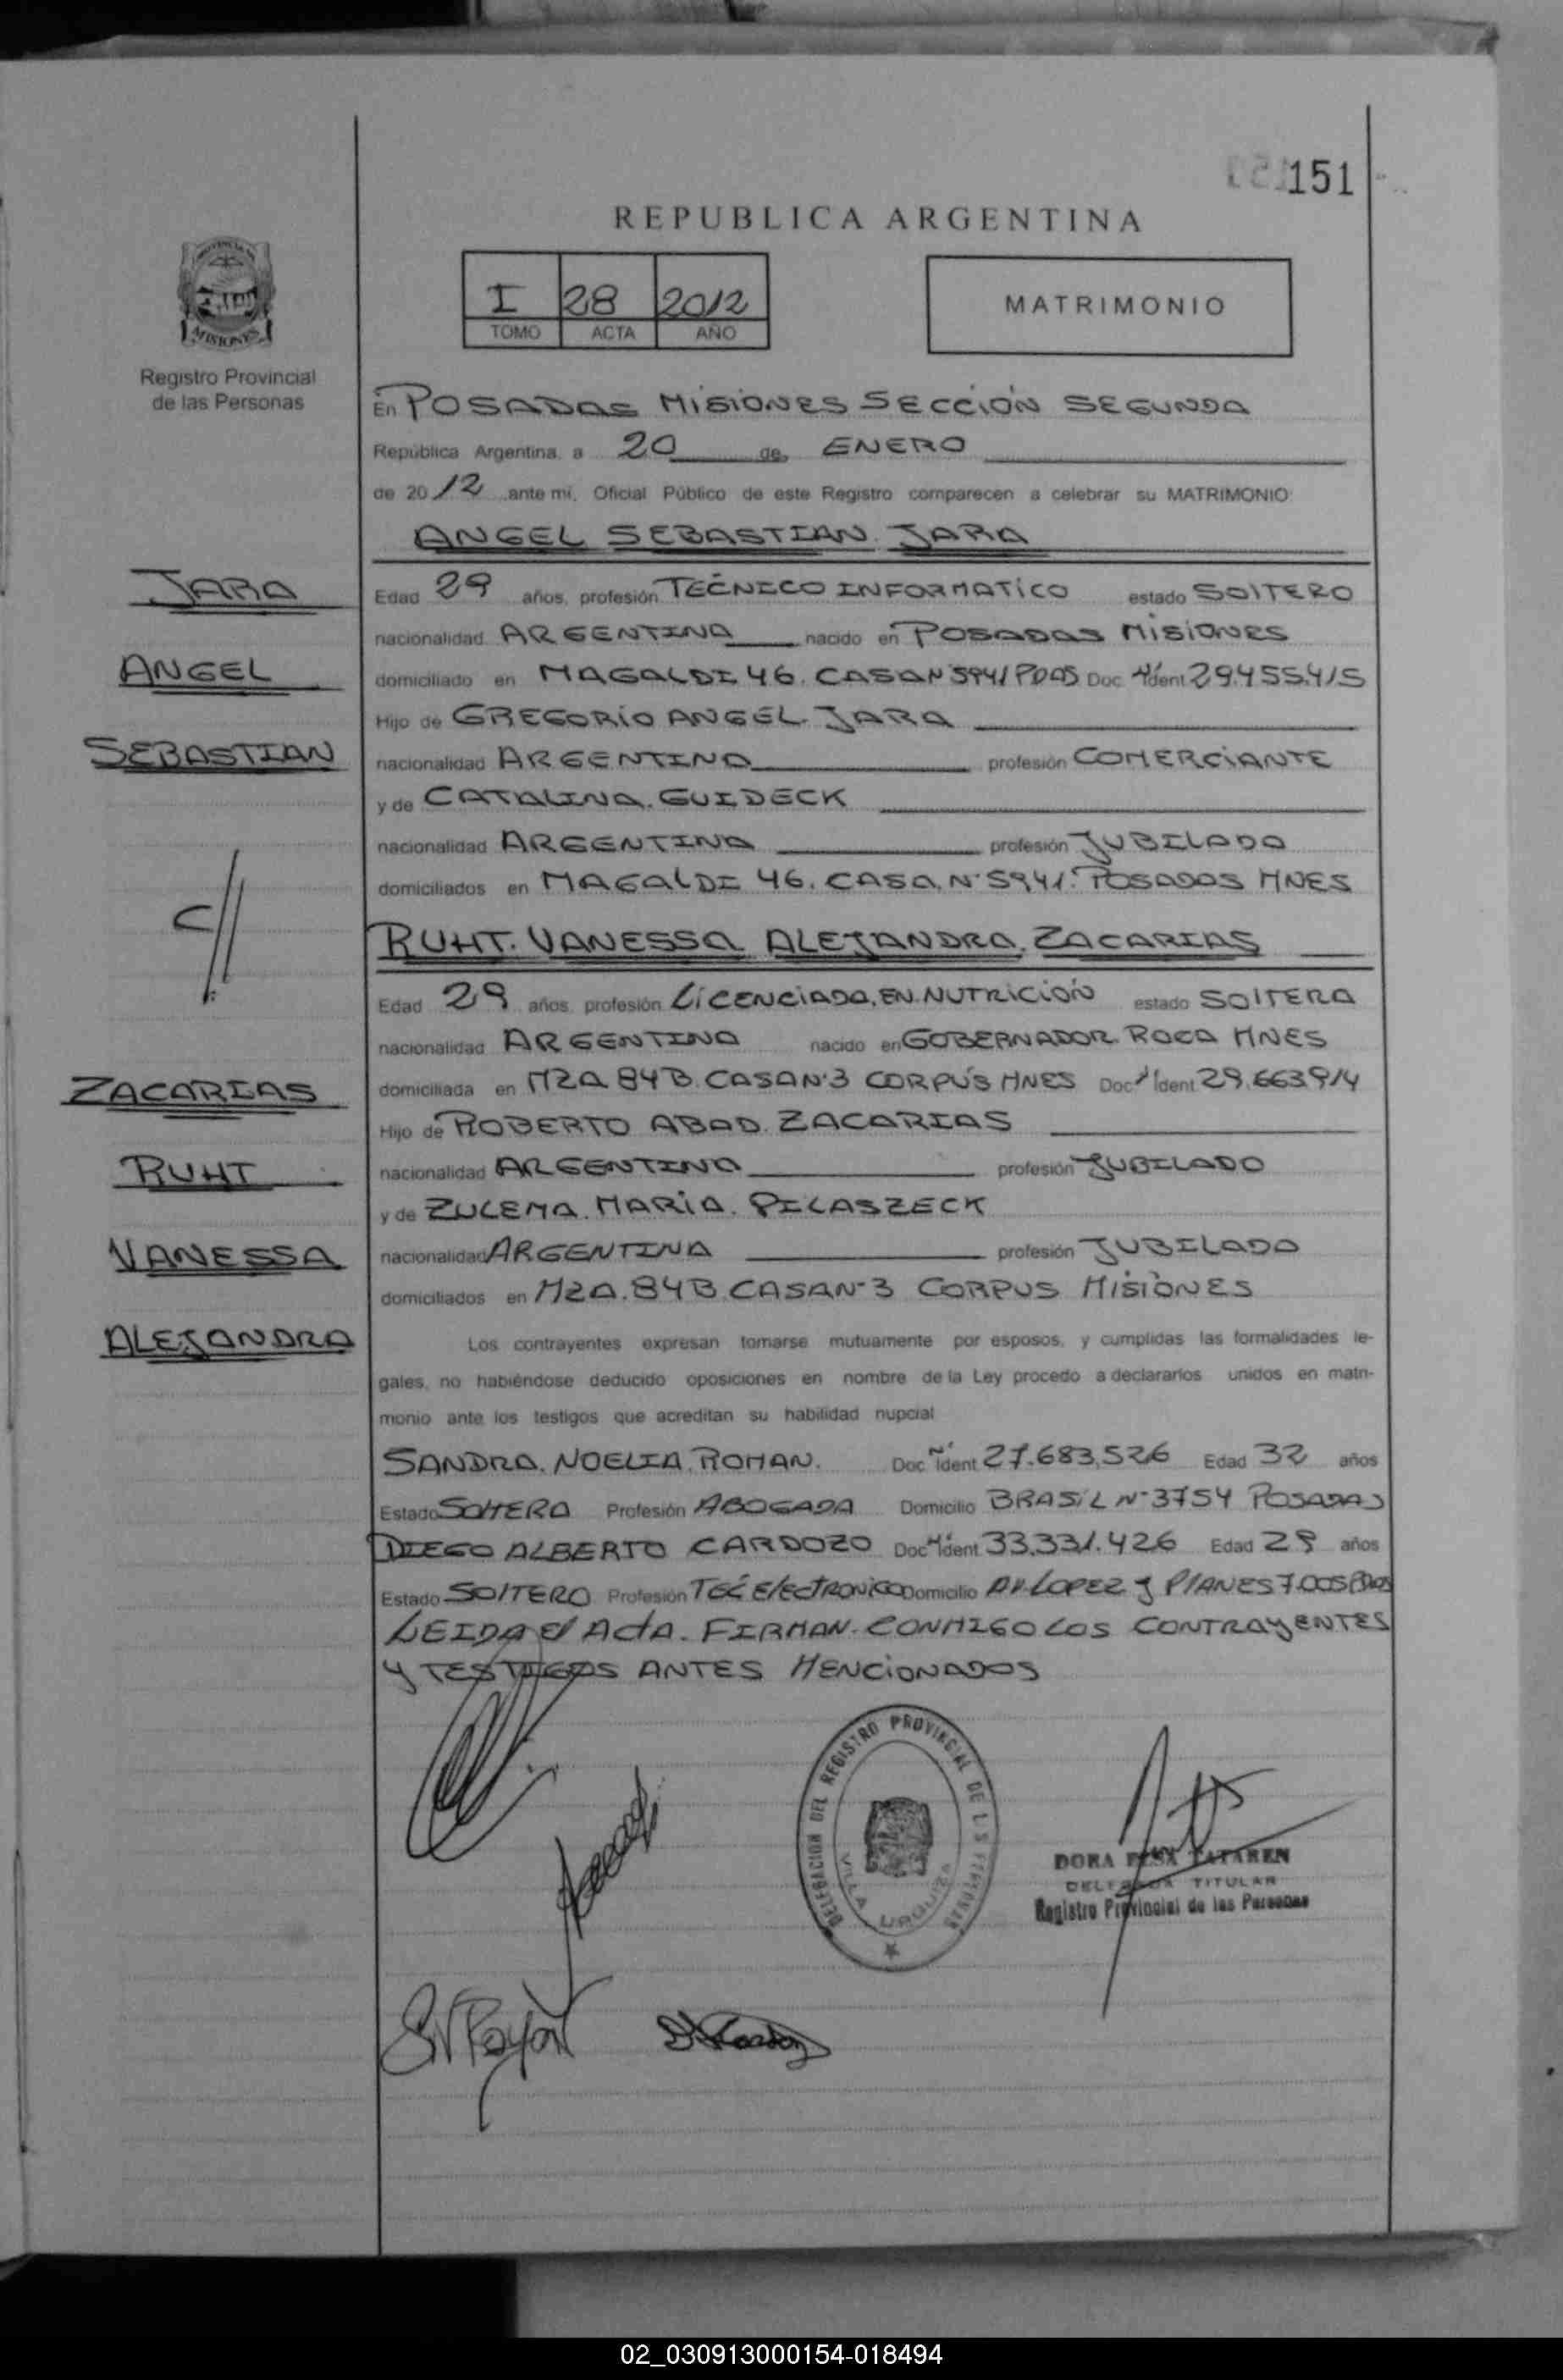 151
REPUBLICA ARGENTINA
I 28 2012
TOMO ACTA AÑO
MATRIMONIO
MISIONES
Registro Provincial
de las Personas
En POSADAS MISIONES SECCIÓN SEGUNDA
República Argentina, a 20 de ENERO
de 2012 ante mí, Oficial Público de este Registro comparecen a celebrar su MATRIMONIO:
ANGEL SEBASTIAN JARA
JARA
ANGEL
SEBASTIAN
Edad 29 años, profesión TECNICO INFORMATICO estado SOLTERO
nacionalidad ARGENTINA nacido en POSADAS MISIONES
domiciliado en MAGALDI 46. CASA N 5941 PDAS Doc. N° Ident 29.455.415
Hijo de GREGORIO ANGEL JARA
nacionalidad ARGENTINO profesión COMERCIANTE
y de CATALINA GUIDECK
nacionalidad ARGENTINA profesión JUBILADA
domiciliados en MAGALDI 46. CASA. N° 5941. POSADAS MNES
RUHT. VANESSA ALEJANDRA. ZACARIAS
Edad 29 años profesión LICENCIADA. EN NUTRICIÓN estado SOLTERA
nacionalidad ARGENTINA nacido en GOBERNADOR ROCA MNES
domiciliada en MZA 84B CASA N°3 CORPUS MNES Doc N° Ident 29.663.914
Hijo de ROBERTO ABAD ZACARIAS
nacionalidad ARGENTINO profesión JUBILADO
y de ZULEMA. MARIA. PILASZECK
nacionalidad ARGENTINA profesión JUBILADA
domiciliados en MZA. 84B CASA N°3 CORPUS MISIONES
ZACARIAS
RUHT
VANESSA
ALEJANDRA
Los contrayentes expresan tomarse mutuamente por esposos, y cumplidas las formalidades le-
gales, no habiéndose deducido oposiciones en nombre de la Ley procedo a declararlos unidos en matri-
monio ante los testigos que acreditan su habilidad nupcial
SANDRA. NOELIA. ROMAN. Doc. N° Ident 27.683.526 Edad 32 años
Estado SOLTERA Profesión ABOGADA Domicilio BRASIL N° 3754 POSADAS
DIEGO ALBERTO CARDOZO Doc N° Ident 33.331.426 Edad 29 años
Estado SOLTERO Profesión TEC ELECTRONICO Domicilio AV. LOPEZ y PLANES 7.005 PDAS
LEIDA el ACTA. FIRMAN. CONMIGO LOS CONTRAYENTES
Y TESTIGOS ANTES MENCIONADOS
DELEGACION DEL REGISTRO PROVINCIAL DE LAS PERSONAS
VILLA URQUIZA
DORA TATAREN
DELEGADA TITULAR
Registro Provincial de las Personas
02_030913000154-018494